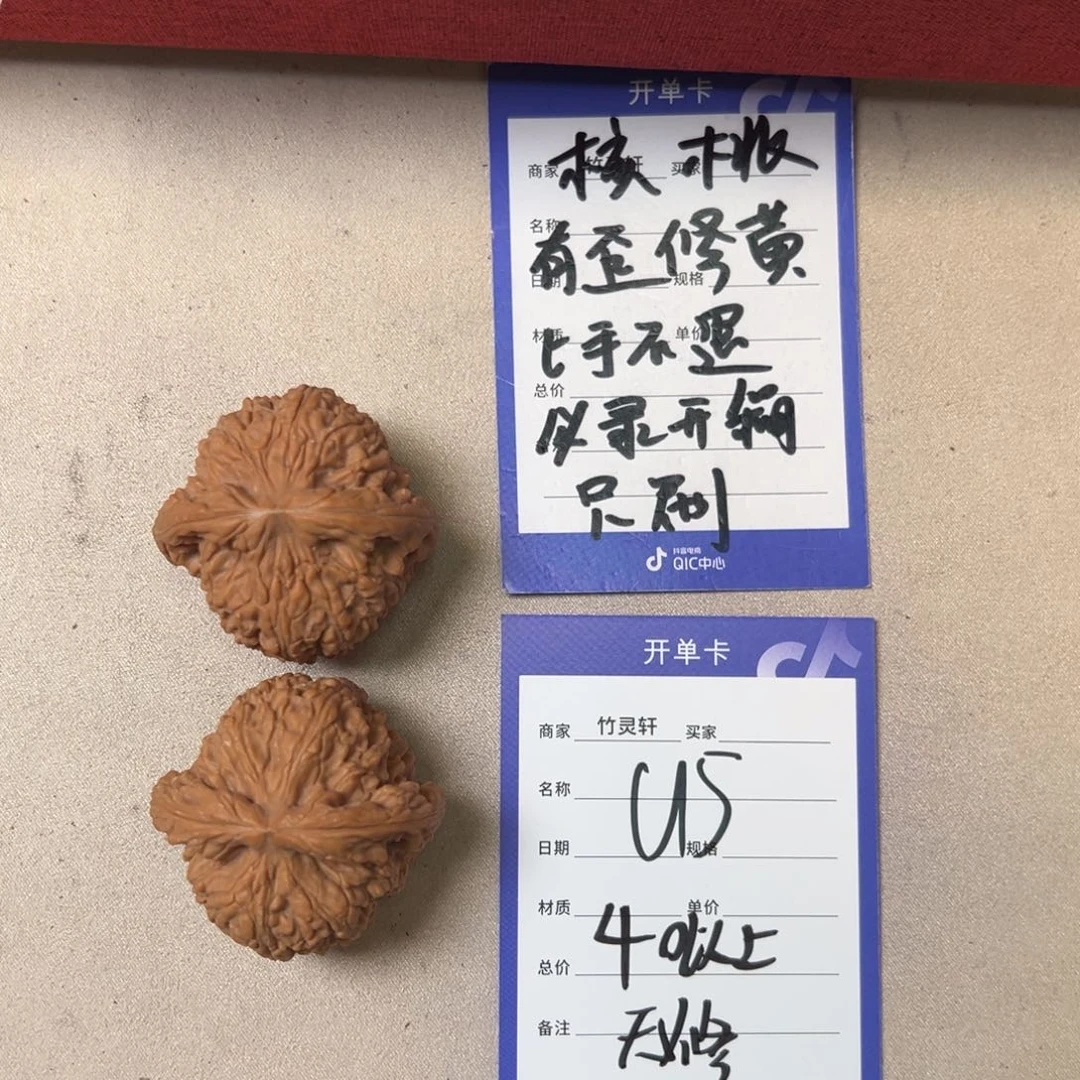 开单卡
核 桃
商家 竹灵轩 买家
名称
有歪修黄
日期 规格
材质 单价
上手不退
总价
必录开箱
只刷
抖音电商
QIC中心
开单卡
商家 竹灵轩 买家
名称
U5
日期 规格
材质 单价
40以上
总价
备注
无修